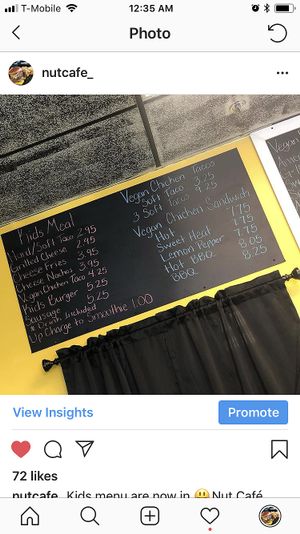 T-Mobile 12:35 AM
Photo
nutcafe_
Kids Meal
Hard/Soft Taco 2.95
Grilled Cheese 2.95
Cheese Fries 3.95
Cheese Nachos 3.95
Vegan Chicken Taco 4.25
Kids Burger 5.25
Sausage 5.25
* Drink Included
Up Charge to Smoothie 1.00
Vegan Chicken Tacos
Soft Taco 3.25
3 Soft Tacos 9.25
Vegan Chicken Sandwich
Hot 7.75
Sweet Heat 7.75
Lemon Pepper 7.75
Hot BBQ 8.05
BBQ 8.25
Vegan
View Insights
Promote
72 likes
nutcafe_ Kids menu are now in 😃 Nut Café